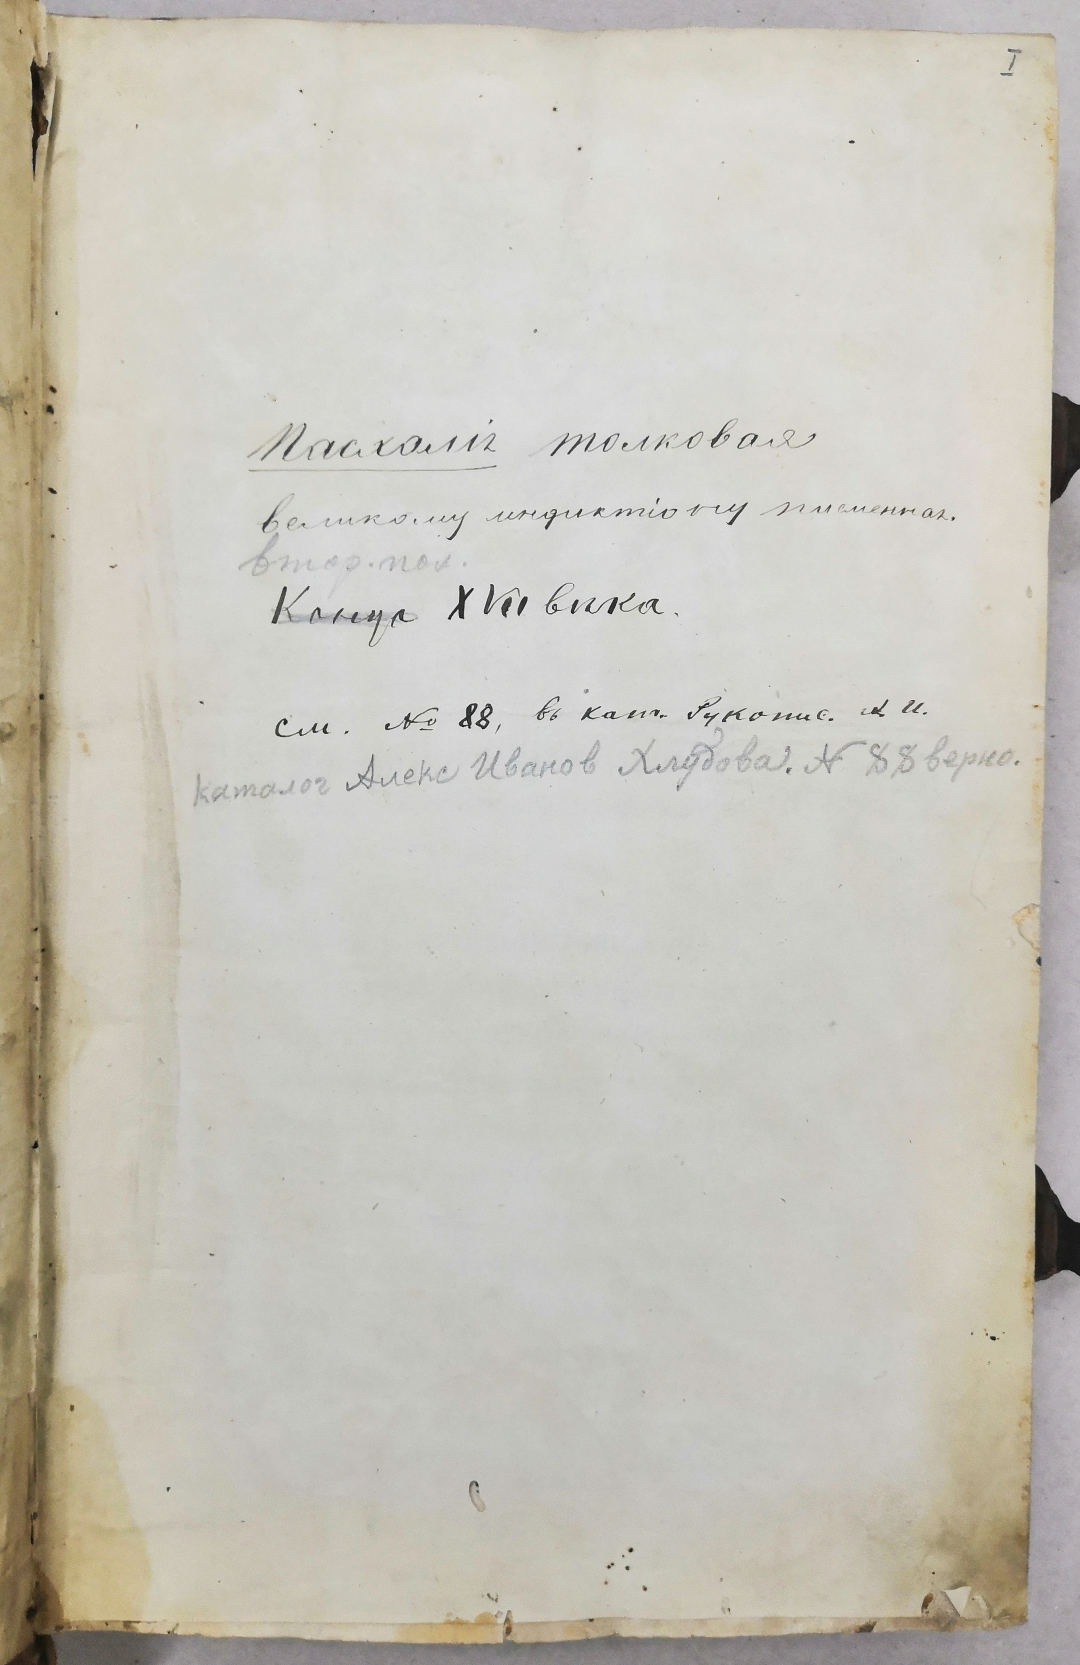 I
Пасхалія толковая
великому индиктіону писменная.
втор. пол.
Конца XVII вѣка.
см. № 88, въ кат. Рукопис. А. И.
каталог Алекс Иванов Хлудова. N 88 верно.